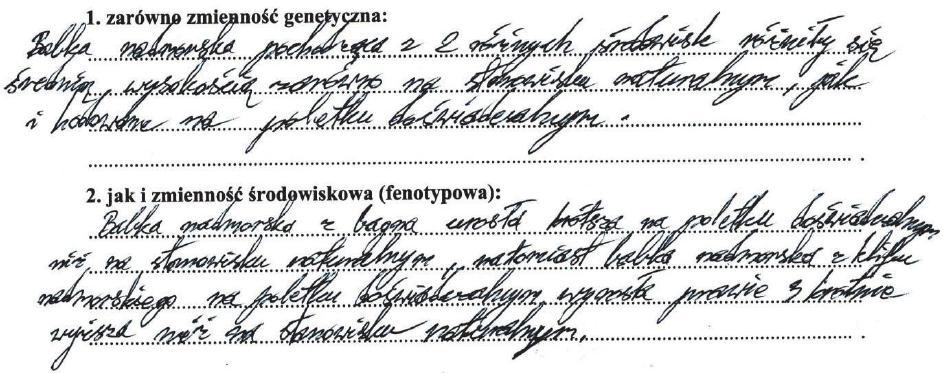 1. zarówno zmienność genetyczna:
Babka nadmorska pochodząca z 2 różnych środowisk różniły się
średnią wysokością zarówno na stanowisku naturalnym, jak
i hodowane na poletku doświadczalnym.
2. jak i zmienność środowiskowa (fenotypowa):
Babka nadmorska z bagna urosła krótsza na poletku doświadczalnym
niż na stanowisku naturalnym, natomiast babka nadmorska z klifu
nadmorskiego na poletku doświadczalnym wyrosła prawie 3 krotnie
wyższa niż na stanowisku naturalnym.